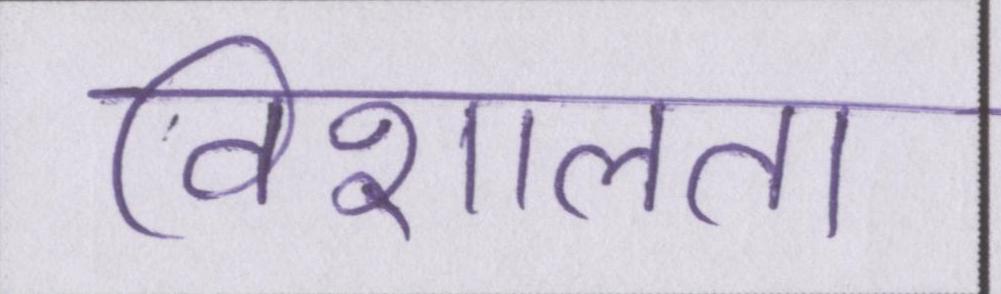 विशालता